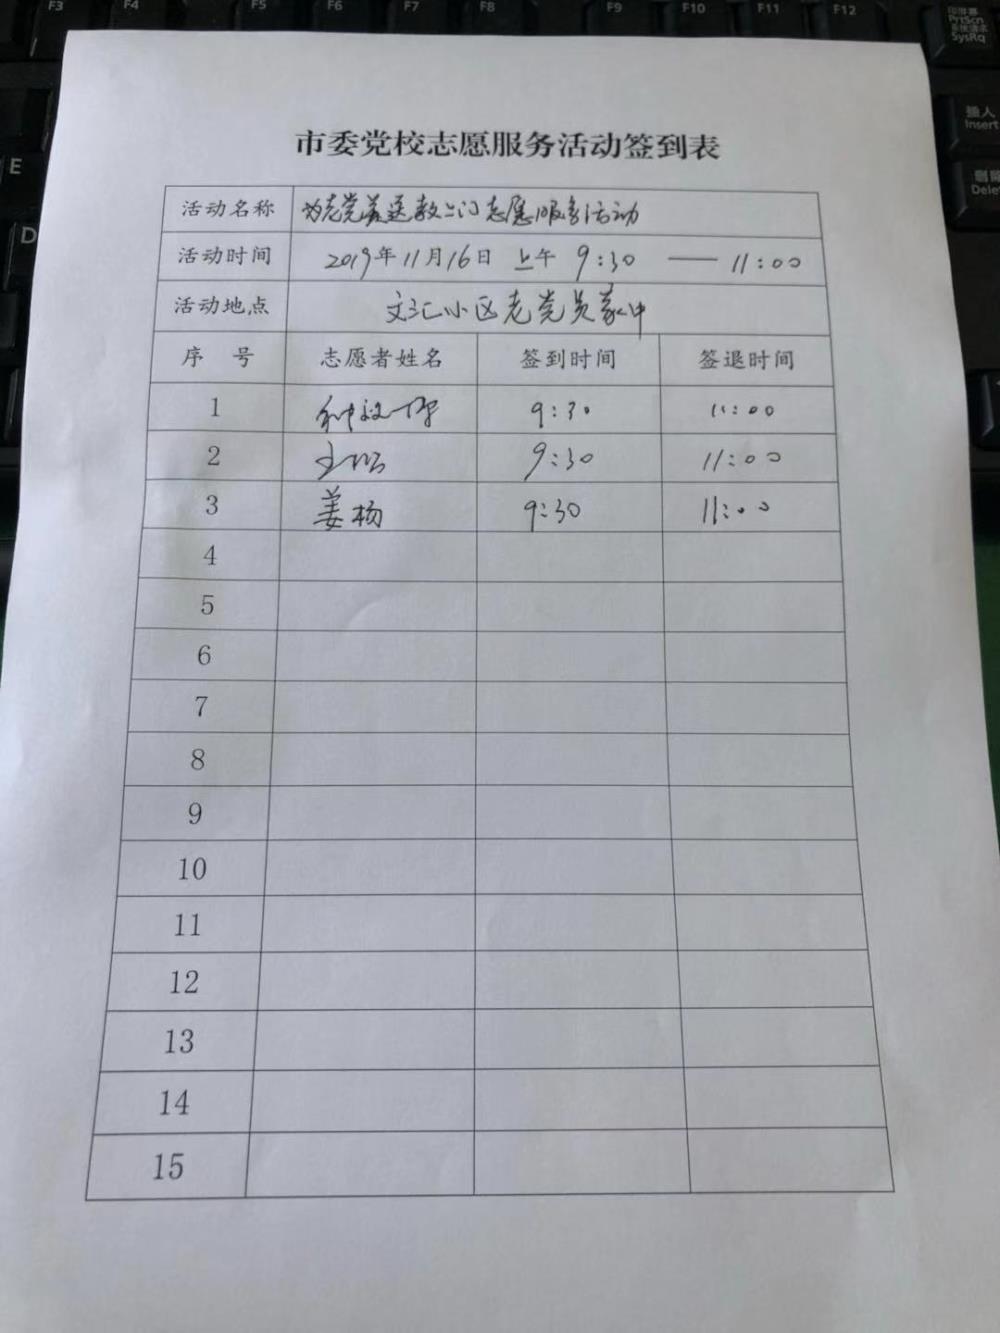 F3 F4 F5 F6 F7 F8 F9 F10 F11 F12
印屏幕
PrtScn
系统请求
SysRq
插入
Insert
E
D
市委党校志愿服务活动签到表
活动名称 为老党员送教上门志愿服务活动
活动时间 2019年11月16日 上午 9:30 — 11:00
活动地点 文汇小区老党员家中
序 号 志愿者姓名 签到时间 签退时间
1 9:30 11:00
2 9:30 11:00
3 姜杨 9:30 11:00
4
5
6
7
8
9
10
11
12
13
14
15